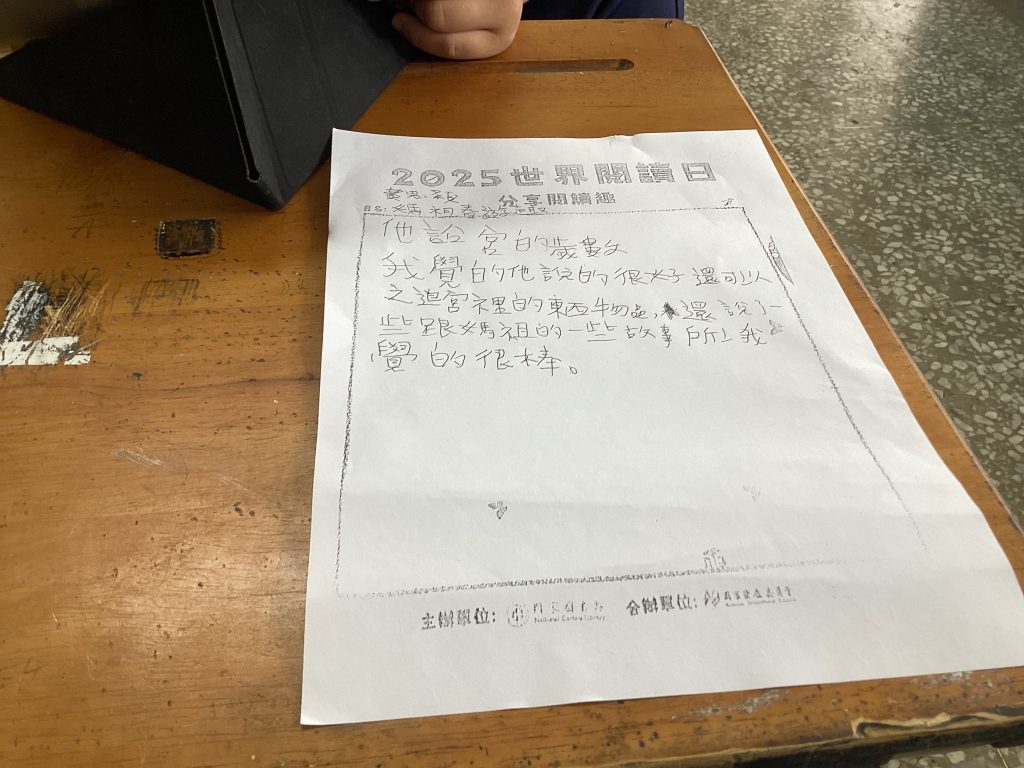 2025世界閱讀日
分享閱讀趣
書名: 媽祖春遊
他說宮的歲數
我覺的他說的很好還可以
之道宮裡的東西牛物品,還說了一
些跟媽祖的一些故事所以我
覺的很棒。
主辦單位: 國家圖書館 National Central Library 合辦單位: 國家發展委員會 National Development Council